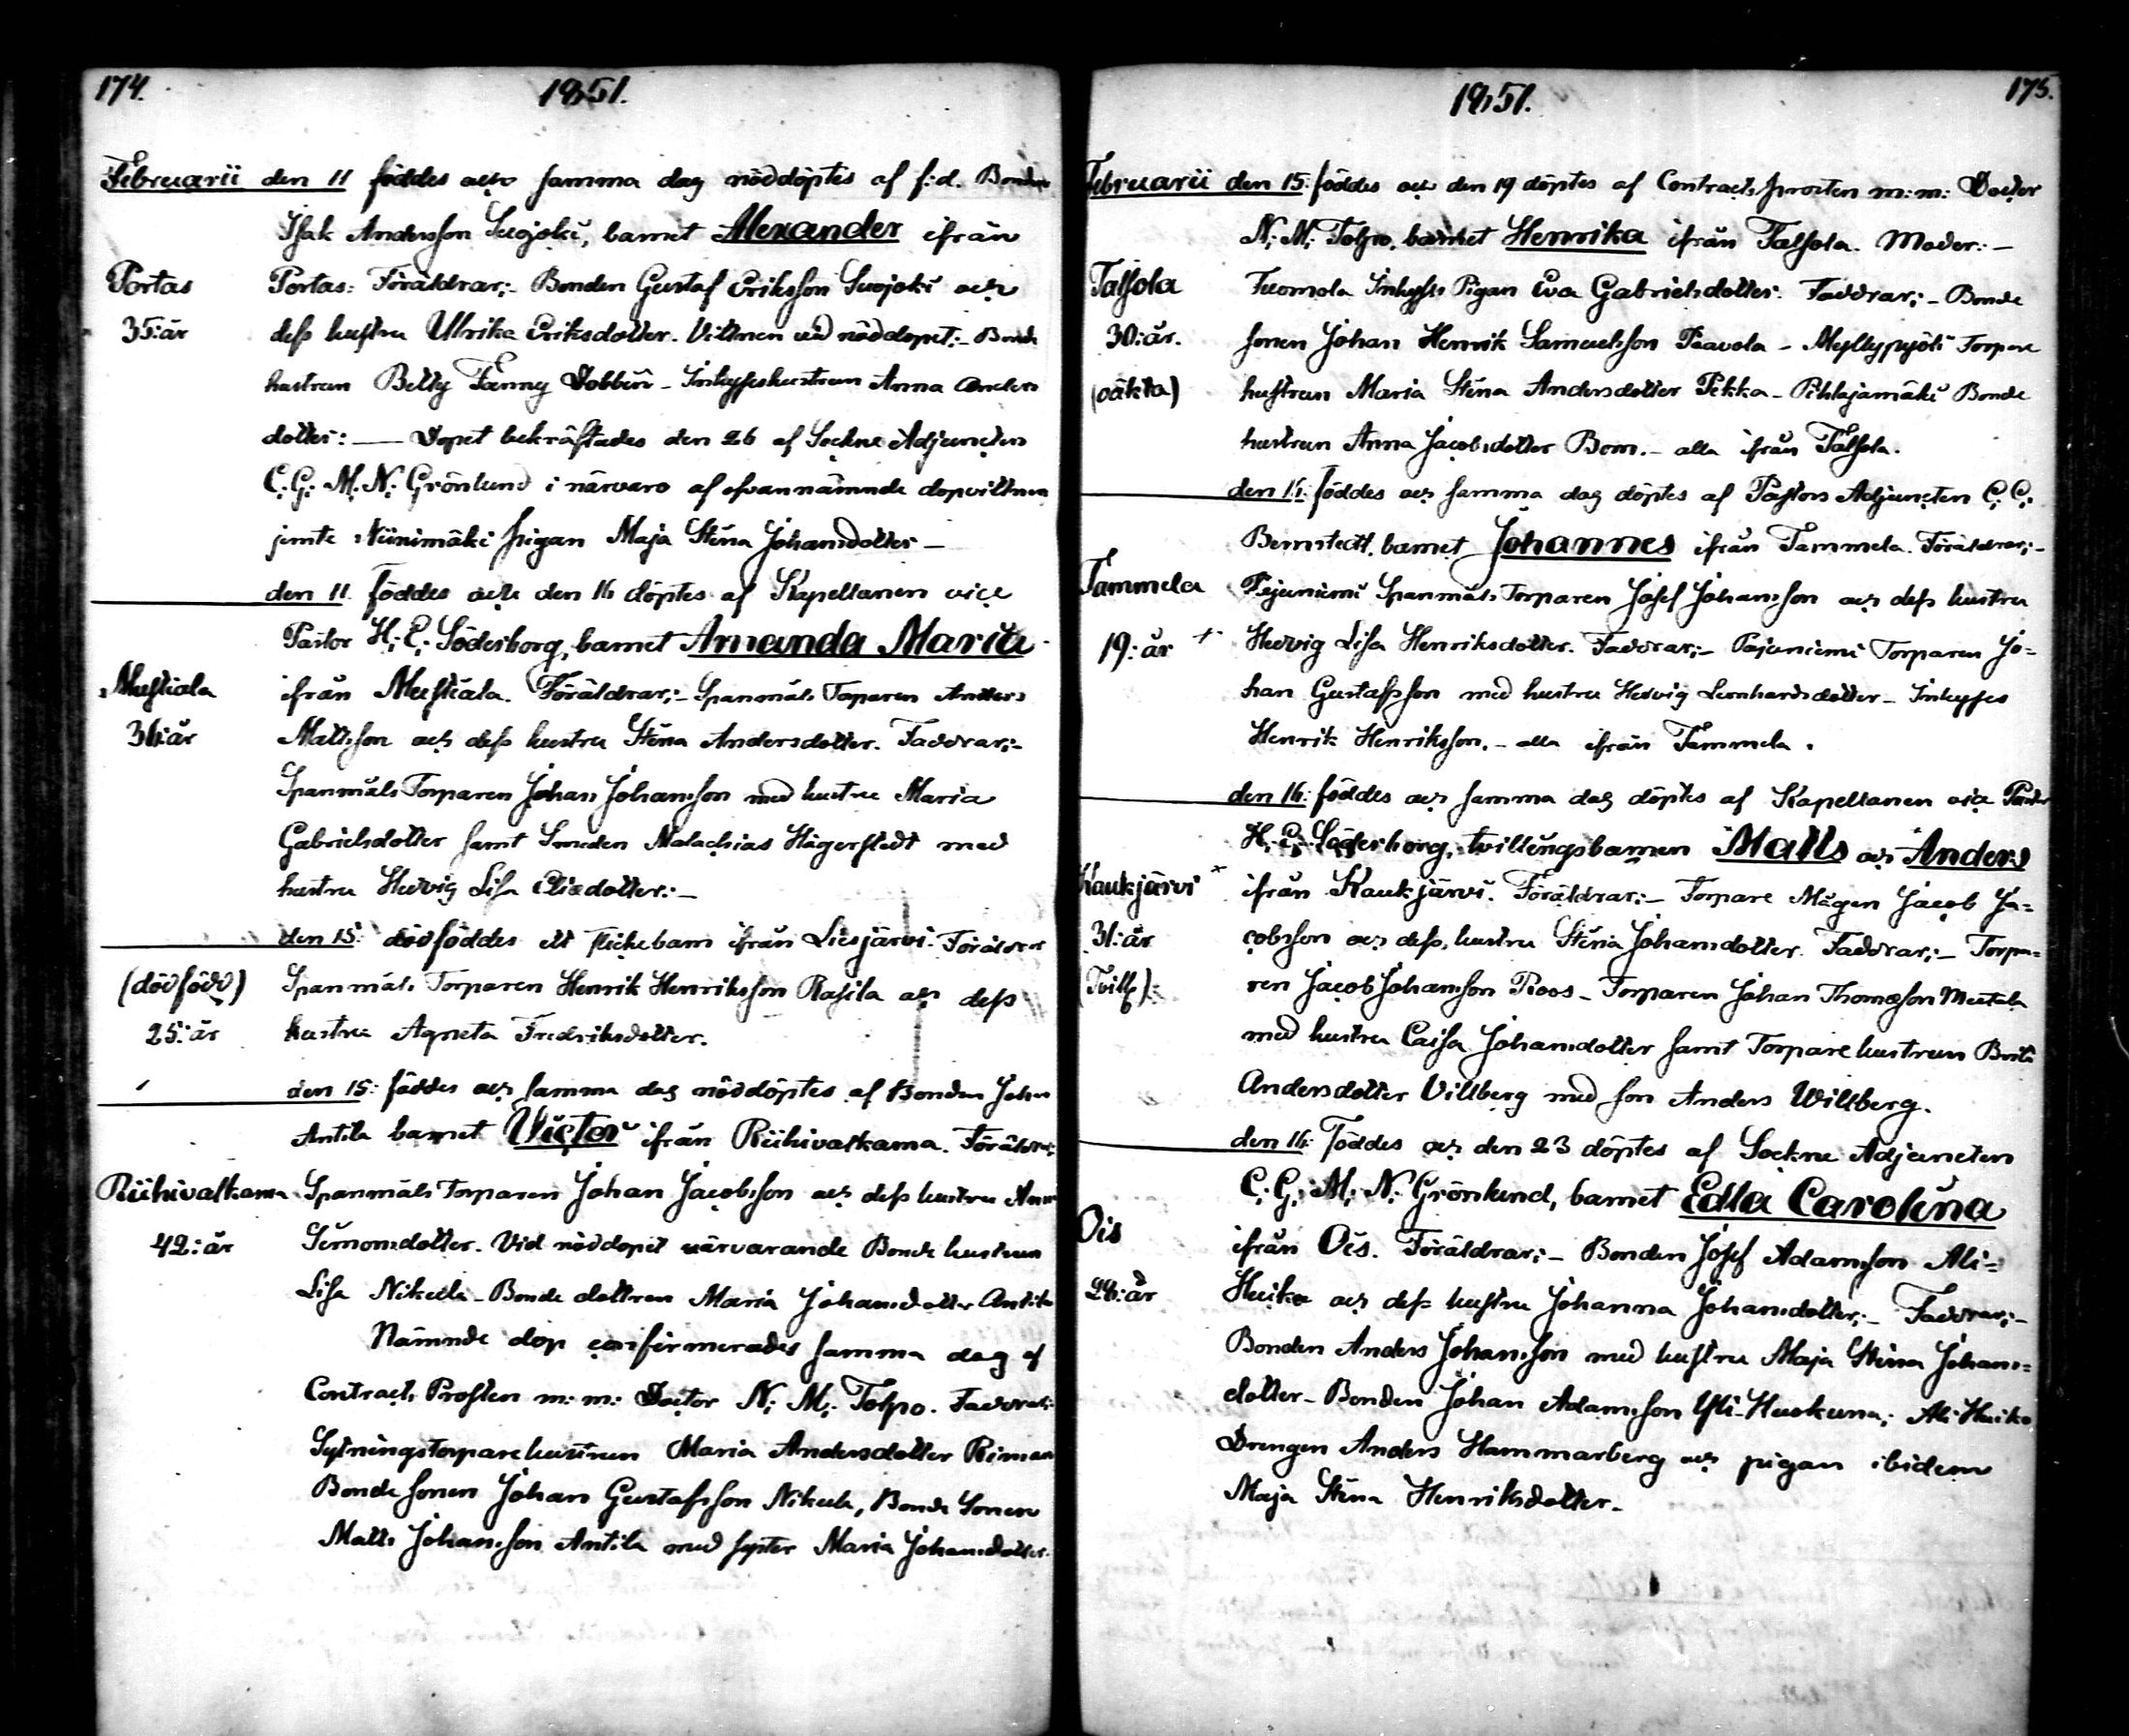 174.
1851.
Februarii den 11 föddes och samma dag nöddöptes af f:d. Bonden
Isak Andersson Suojoki, barnet Alexander ifrån
Portas
Portas: Föräldrar;- Bonden Gustaf Eriksson Suojoki och
35:år
dess hustru Ulrika Eriksdotter. Vittnen vid nöddopet:- Bonde
hustrun Betty Fanny Dobbin - Inhyseshustrun Anna Anders
dotter: — Dopet bekräftades den 26 af Sockne Adjuncten
C. G. M. N. Grönlund i närvaro af ofvannämnde dopvittnen
jemte Niinimäki pigan Maja Stina Johansdotter -
den 11. föddes och den 16 döptes af Kapellanen vice
Pastor H. E. Söderborg, barnet Amanda Maria
Mustiala
ifrån Mustiala. Föräldrar;- Spanmåls Torparen Anders
36:år
Mattsson och dess hustru Stina Andersdotter. Faddrar;-
Spanmåls Torparen Johan Johansson med hustru Maria
Gabrielsdotter samt Smeden Malachias Hägerstedt med
hustru Hedvig Lisa Eliædotter:-
den 15: dödföddes ett flickebarn ifrån Liesjärvi. Föräldrar
(dödfödd)
Spanmåls Torparen Henrik Henriksson Rasila och dess
25:år
hustru Agneta Fredriksdotter.
den 15: föddes och samma dag nöddöptes af Bonden Johan
Antila barnet Victor ifrån Riihivalkama. Föräldrar;
Riihivalkama
Spanmåls Torparen Johan Jacobsson och dess hustru Anna
42:år
Simonsdotter. Vid nöddopet närvarande Bonde hustrun
Lisa Nikula - Bonde dottren Maria Johansdotter Antila
Nämnde dop confirmerades samma dag af
Contracts Prosten m: m: Doctor N. M. Tolpo. Faddrar:
Sytningstorparehustrun Maria Andersdotter Riman
Bonde sonen Johan Gustafsson Nikula, Bonde Sonen
Matts Johansson Antila med syster Maria Johansdotter.
1851.
175.
Februarii den 15: föddes och den 19 döptes af Contracts prosten m: m: Doctor
N. M. Tolpo, barnet Henrika ifrån Talsola. Moder:-
Talsola
Tuomola Inhyses Pigan Eva Gabrielsdotter. Faddrar;- Bonde
30:år.
sonen Johan Henrik Samuelsson Paavola - Myllypyöli Torpare
(oäkta)
hustrun Maria Stina Andersdotter Pekka - Pihlajamäki Bonde
hustrun Anna Jacobsdotter Bom. - alla ifrån Talsola.
den 16: föddes och samma dag döptes af Pastors Adjuncten C. C.
Bernstedt, barnet Johannes ifrån Tammela. Föräldrar;-
Tammela
Pajuniemi Spanmåls Torparen Josef Johansson och dess hustru
19:år +
Hedvig Lisa Henriksdotter. Faddrar;- Pajuniemi Torparen Jo=
han Gustafsson med hustru Hedvig Leonhardsdotter - Inhyses
Henrik Henriksson. - alla ifrån Tammela.
den 16: föddes och samma dag döptes af Kapellanen vice Pastor
H. E. Söderborg, tvillingsbarnen Matts och Anders
Kaukjärvi ×
ifrån Kaukjärvi. Föräldrar:- Torpare Mågen Jacob Ja=
31:år
cobsson och dess hustru Stina Johansdotter. Faddrar;- Torpa=
(Tvill):
ren Jacob Johansson Roos - Torparen Johan Thomæson Mustala
med hustru Caisa Johansdotter samt Torpare hustrun Brita
Andersdotter Villberg med son Anders Willberg.
den 16: föddes och den 23 döptes af Sockne Adjuncten
C. G. M. N. Grönlund, barnet Edla Carolina
Ois
ifrån Ois. Föräldrar;- Bonden Josef Adamsson Ali=
28:år
Huiko och dess hustru Johanna Johansdotter;- Faddrar;-
Bonden Anders Johansson med hustru Maja Stina Johans=
dotter - Bonden Johan Adamsson Yli-Huokuna; Ali Huiko
Drengen Anders Hammarberg och pigan ibidem
Maja Stina Henriksdotter.